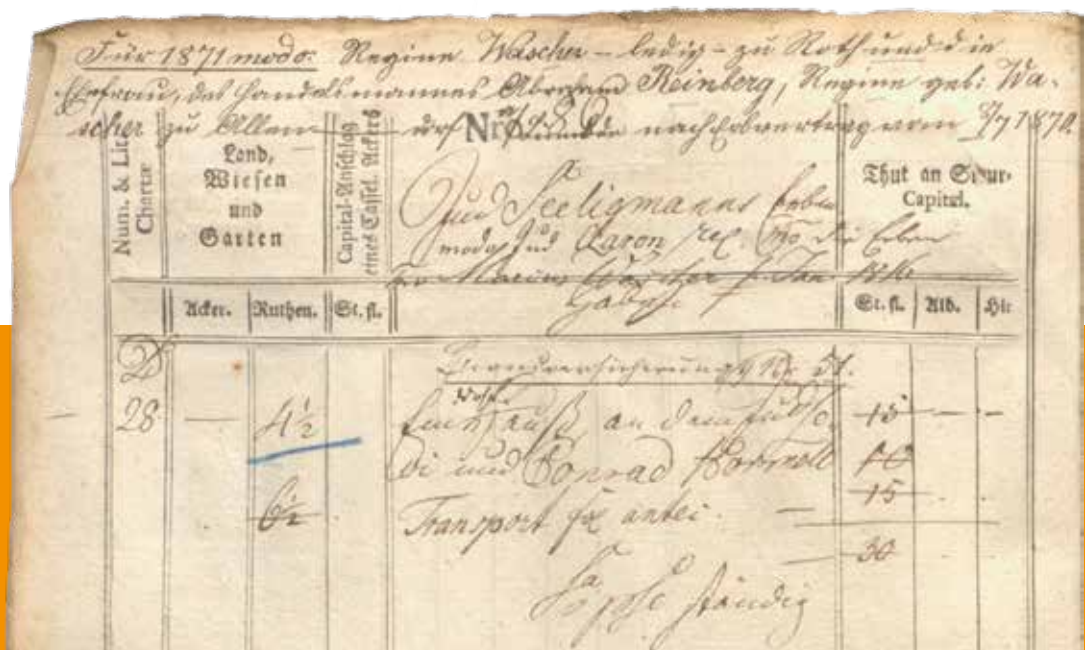 Für 1871 modo: Regine Wascher – ledig – zu Roth und die
Ehefrau, des Handelsmannes Abraham Reinberg, Regine geb: Wa-
scher zu Allen Nro nach Erbvertrag vom 1870
Num. & Lit. Chartæ
Land, Wiesen und Garten
Capital-Anschlag eines Cassel. Ackers
Jud Seeligmanns Erben
modo Jud Aaron rel. mo die Erben
Marcus Wascher
Thut an Steur-Capital.
Acker. Ruthen. St. fl. St. fl. Alb. Hlr
D Brandversicherung Nr. 51.
Wohn
28 — 4½ Ein Hauß, an dem 15 — -
und Conrad 10
15
6½ Transport fol antei. —
— 30
ständig